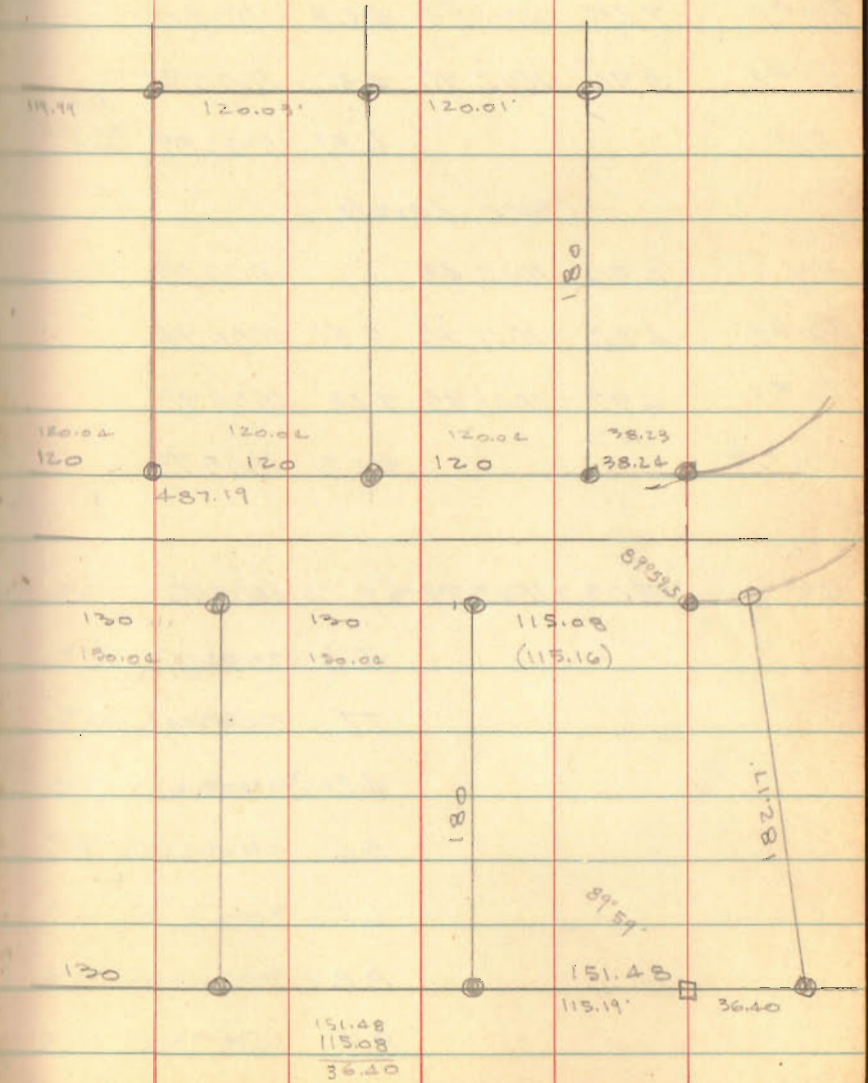 119.99 120.03' 120.01'
180
120.02 120.02 120.02 38.23
120 120 120 38.24
487.19
89°59.5
130 130 115.08
130.02 130.02 (115.16)
180 182.17
89°59'
130 151.48
115.19' 36.40
151.48
115.08
36.40